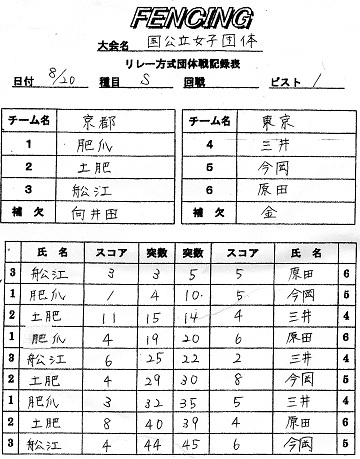 FENCING
大会名 国公立女子団体
リレー方式団体戦記録表
日付 8/20 種目 S 回戦 ピスト 1
チーム名 京都 チーム名 東京
1 肥爪 4 三井
2 土肥 5 今岡
3 舩江 6 原田
補欠 向井田 補欠 金
氏名 スコア 突数 突数 スコア 氏名
3 舩江 3 3 5 5 原田 6
1 肥爪 1 4 10 5 今岡 5
2 土肥 11 15 14 4 三井 4
1 肥爪 4 19 20 6 原田 6
3 舩江 6 25 22 2 三井 4
2 土肥 4 29 30 8 今岡 5
1 肥爪 3 32 35 5 三井 4
2 土肥 8 40 39 4 原田 6
3 舩江 4 44 45 6 今岡 5